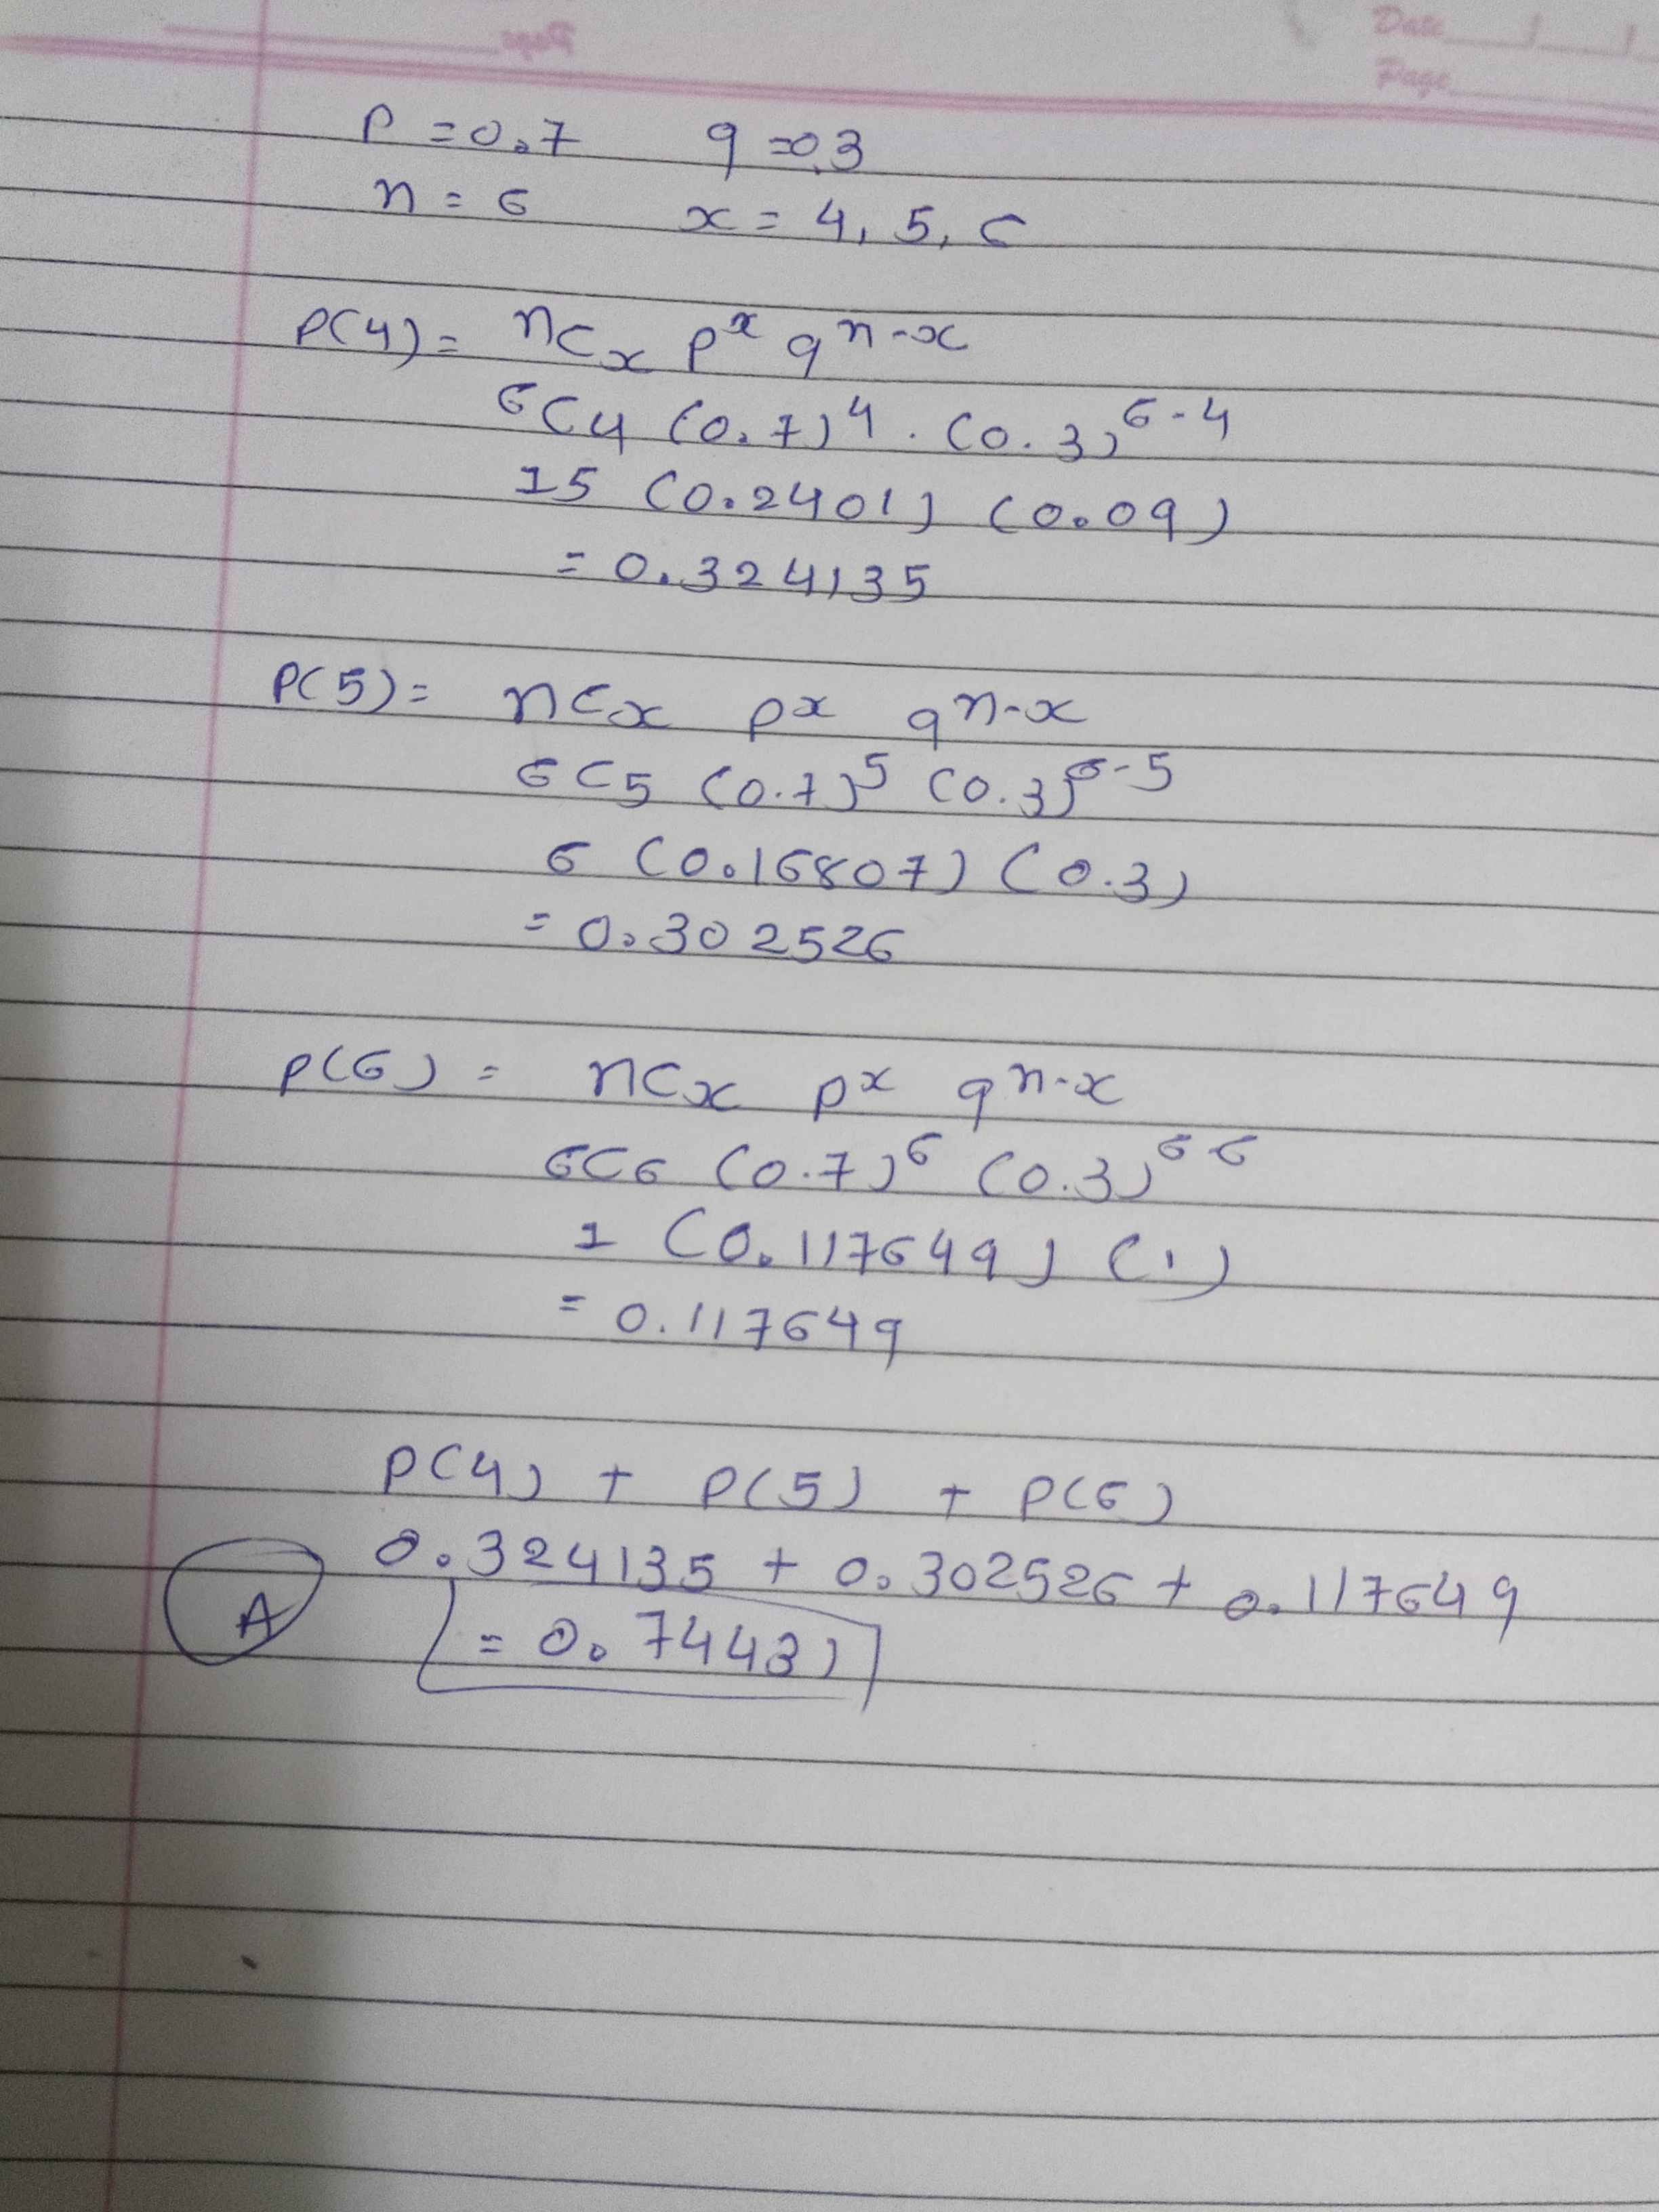 Page
Date
Page
P = 0.7 q = 0.3
n = 6 x = 4, 5, 6
P(4) = nCx p^x q^n-x
6C4 (0.7)^4 . (0.3)^6-4
15 (0.2401) (0.09)
= 0.324135
P(5) = nCx p^x q^n-x
6C5 (0.7)^5 (0.3)^6-5
6 (0.16807) (0.3)
= 0.302526
P(6) = nCx p^x q^n-x
6C6 (0.7)^6 (0.3)^6-6
1 (0.117649) (1)
= 0.117649
P(4) + P(5) + P(6)
0.324135 + 0.302526 + 0.117649
A = 0.74431